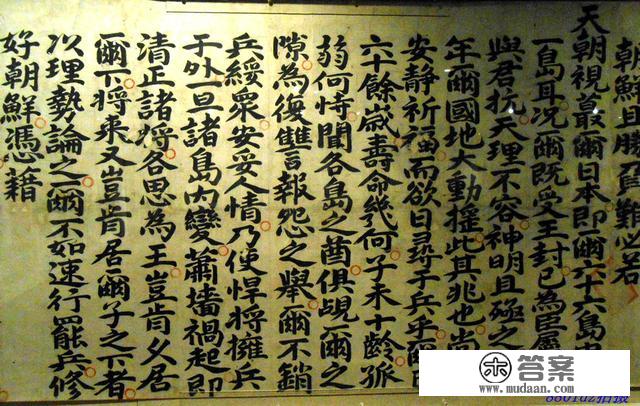 朝鮮日勝負難必若
天朝視蕞爾日本即爾六十六島
一島耳況爾既受王封已為臣屬
與君抗天理不容神明且殛之
年爾國地大動摧此其兆也尚
安静祈福而欲日尋于兵乎爾
六十餘歲壽命幾何子未十齡孤
弱何恃聞各島之酋俱覘爾之
隙為復讐報怨之舉爾不銷
兵綏衆安妥人情乃使悍將擁兵
于外一旦諸島內變蕭墻禍起即
清正諸將各思為王豈肯久居
爾下將來又豈肯居爾子之下者
以理勢論之爾不如速行罷兵修
好朝鮮憑藉
答案
www.mudaan.com
拍摄